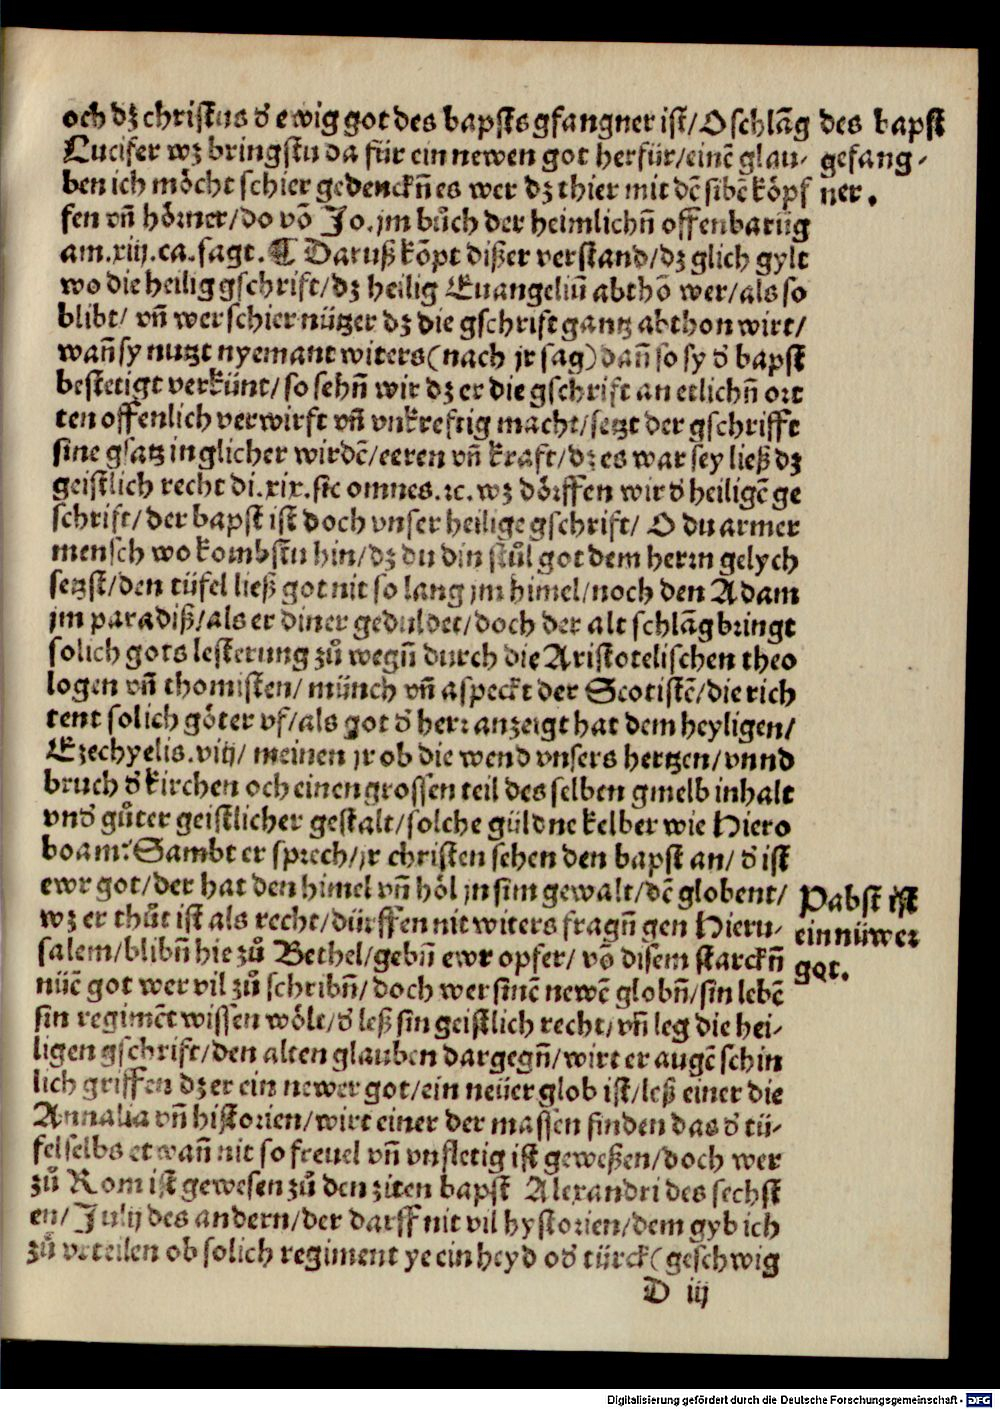 och dʒ christus d᷒ ewig got des bapsts gfangner ist/ O schlãg
Lucifer wʒ bringstu da für ein newen got herfür/einẽ glau-
ben ich möcht schier gedenckñ es wer dʒ thier mit dẽ sibẽ köpf
fen vñ hörner/do võ Jo. jm bůch der heimlichñ offenbarũg
am.xiij.ca.sagt.¶ Daruß kõpt dißer verstand/dʒ glich gylt
wo die heilig gschrift/dʒ heilig Euangeliũ abthõ wer/als so
blibt/ vñ wer schier nützer dʒ die gschrift gantz abthon wirt/
wañ sy nutzt nyemant witers(nach jr sag)dañ so sy d᷒ bapst
bestetigt verkünt/so sehñ wir dʒ er die gschrift an etlichñ ort
ten offenlich verwirft vñ vnkreftig macht/setzt der gschrifft
sine gsatz in glicher wirdẽ/eeren vñ kraft/dʒ es war sey ließ dʒ
geistlich recht di.xix.sic omnes.ꝛc.wʒ dörffen wir d᷒ heiligẽ ge
schrift/der bapst ist doch vnser heilige gschrift/ O du armer
mensch wo kombstu hin/dʒ du din stůl got dem herrn gelych
setzst/den tüfel ließ got nit so lang jm himel/noch den Adam
jm paradiß/als er diner geduldet/doch der alt schlãg bringt
solich gots lesterung zů wegñ durch die Aristotelischen theo
logen vñ thomisten/ münch vñ aspeckt der Scotistẽ/die rich
tent solich göter vf/als got d᷒ herr anzeigt hat dem heyligen/
Ezechyelis.viij/ meinen jr ob die wend vnsers hertzen/vnnd
bruch d᷒ kirchen och einen grossen teil des selben gmelb inhalt
vnd᷒ gůter geistlicher gestalt/solche güldne kelber wie Hiero
boam? Sambt er sprech/jr christen sehen den bapst an/ d᷒ ist
ewr got/der hat den himel vñ höl jn sim gewalt/dẽ globent/
wʒ er thůt ist als recht/dürffen nit witers fragñ gen Hieru-
salem/blibñ hie zů Bethel/gebñ ewr opfer/ võ disem starckñ
nüẽ got wer vil zů schribñ/doch wer sinẽ newẽ globñ/sin lebẽ
sin regimẽt wissen wöle/d᷒ leß sin geistlich recht/vñ leg die hei-
ligen gschrift/den alten glauben dargegñ/wirt er augẽ schin
lich griffen dʒ er ein newer got/ein neüer glob ist/leß einer die
Annalia vñ historien/wirt einer der massen finden das d᷒ tü-
fel selbs etwañ nit so freuel vñ vnfletig ist geweßen/doch wer
zů Rom ist gewesen zů den ziten bapst Alexandri des sechst
en/Julij des andern/der darff nit vil hystorien/dem gyb ich
zů vrteilen ob solich regiment ye ein heyd od᷒ türck(geschwig
D iij
des bapst
gefang-
ner.
Pabst ist
ein nüwer
got.
Digitalisierung gefördert durch die Deutsche Forschungsgemeinschaft - DFG